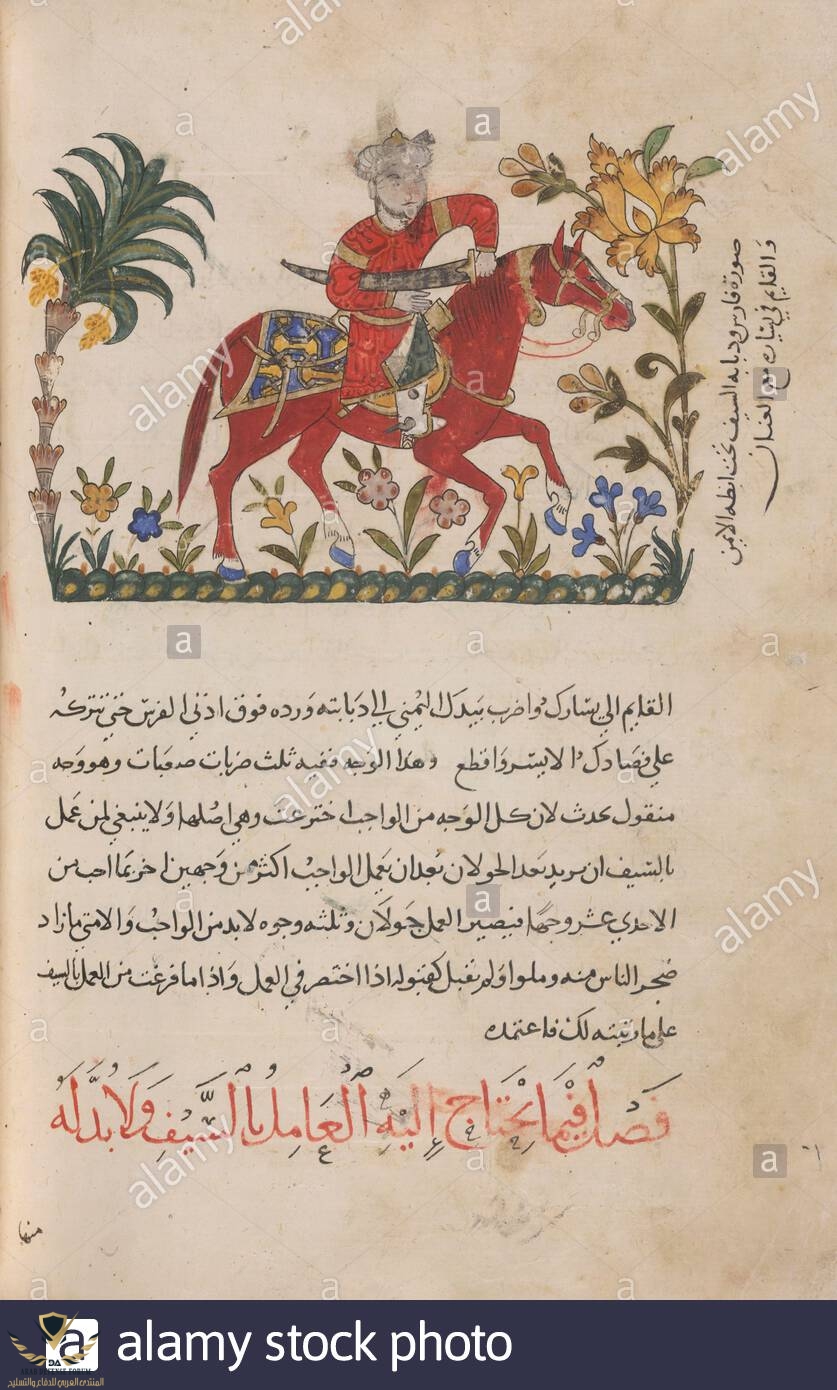 صورة فارس ودبابه السيف تحت ابطه الايمن
والقايم في يساره مع العنان
القايم الي يسارك واضرب بيدك اليمني الي ادبابته ورده فوق اذني الفرس حتي تتركه
علي فصادك الايسر واقطع وهذا الوجه ففيه ثلث ضربات صعبات وهو وجه
منقول محدث لان كل الوجه من الواجب اخترعت وهي اصلها ولا ينبغي لمن عمل
بالسيف ان يريد بعد الجولان بعد ان يعمل الواجب اكثر من وجهين اخر مما احب من
الاحدي عشر وجها فيصير العمل جولان وثلثه وجوه لابد من الواجب والا متي ما زاد
ضجر الناس منه وملوا ولم يقبل كقبوله اذا اختصر في العمل واذا ما فرغت من العمل بالسيف
علي ما رتبته لك فاعتمده
فصل فيما يحتاج إليه العامل بالسيف ولا بد له
منها
alamy
a
alamy stock photo
المنتدى العربي للدفاع والتسليح